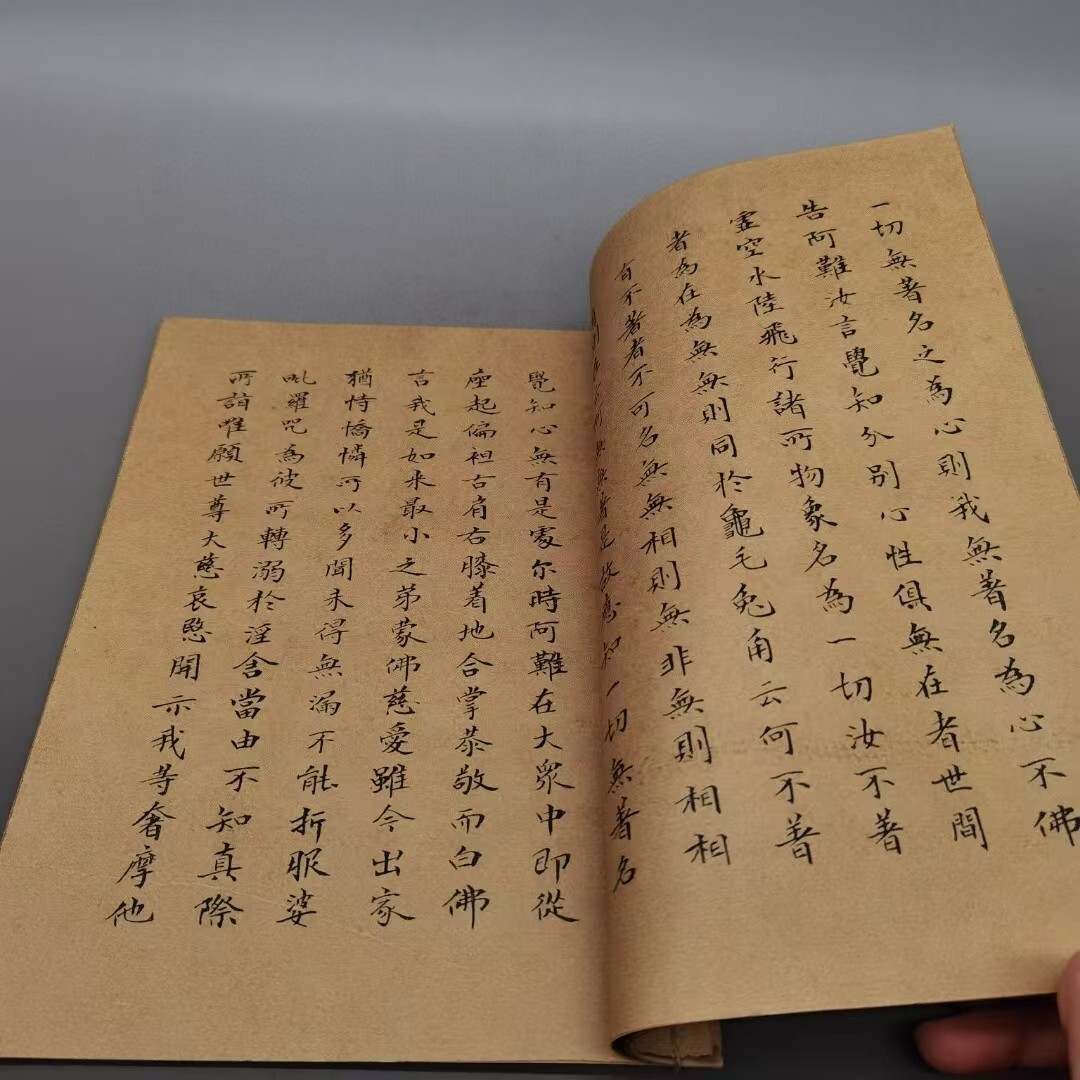 一切無著名之為心則我無著名為心不佛
告阿難汝言覺知分别心性俱無在者世間
虛空水陸飛行諸所物象名為一切汝不著
者為在為無無則同於龜毛兔角云何不著
有不著者不可名無無相則無非無則相相
無著是故應知一切無著名
覺知心無有是處尔時阿難在大衆中即從
座起偏袒古肩右膝着地合掌恭敬而白佛
言我是如来最小之弟蒙佛慈愛雖今出家
猶恃憍憐所以多聞未得無漏不能折服娑
吡羅咒為彼所轉溺於淫舍當由不知真際
所詣唯願世尊大慈哀愍開示我等奢摩他